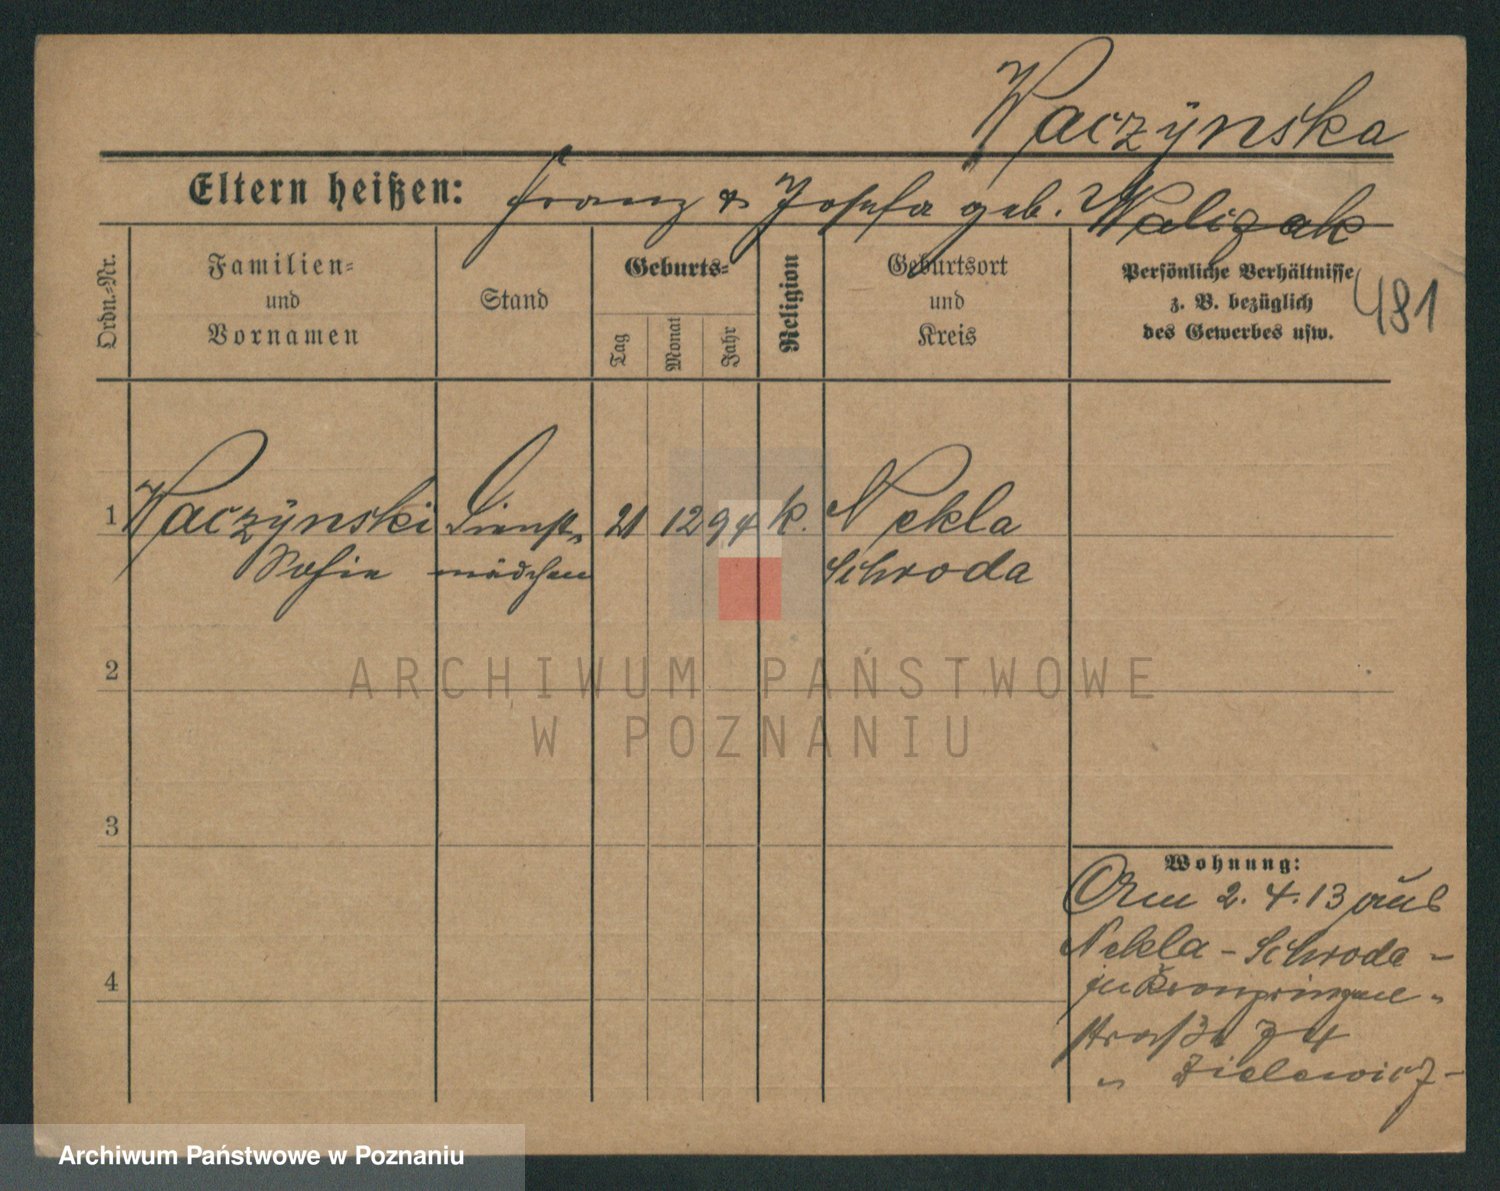 Waczÿnska
Eltern heißen: Franz & Josefa geb. Walizak
Ordn.-Nr.
Familien-
und
Vornamen
Stand
Geburts-
Tag
Monat
Jahr
Religion
Geburtsort
und
Kreis
Persönliche Verhältnisse
z. B. bezüglich
des Gewerbes usw.
481
1 Waczÿnski Dienst- 21 12 94 k. Nekla
Sofie mädchen Schroda
2
3
4
Wohnung:
Am 2. 4. 13 aus
Nekla - Schroda -
zu Kronprinzen-
straße 74
" Zielewicz -
ARCHIWUM PAŃSTWOWE
W POZNANIU
Archiwum Państwowe w Poznaniu